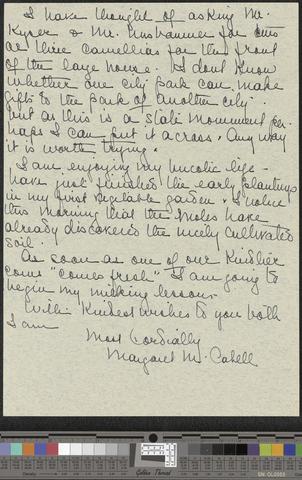 I have thought of asking Mr.
Kyser & Mr. for two
or three camellias for the front
of the large house. I dont know
whether one city park can make
gifts to the park of another city.
but as this is a State Monument per
haps I can put it across. Any way
it is worth trying.
I am enjoying my bucolic life -
have just finished the early plantings
in my first vegetable garden. I notice
this morning that the moles have
already discovered the nicely cultivated
soil.
As soon as one of our Kindlier
cows "comes fresh" I am going to
begin my milking lessons.
With Kindest wishes to you both
I am
Most Cordially
Margaret M. Cahell
Golden Thread